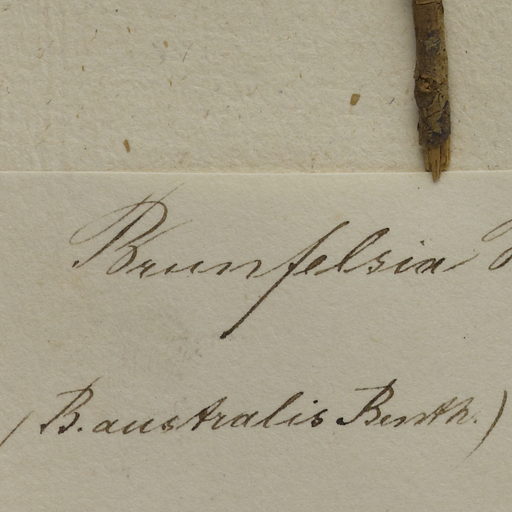 Brunfelsia
(B. australis Benth.)